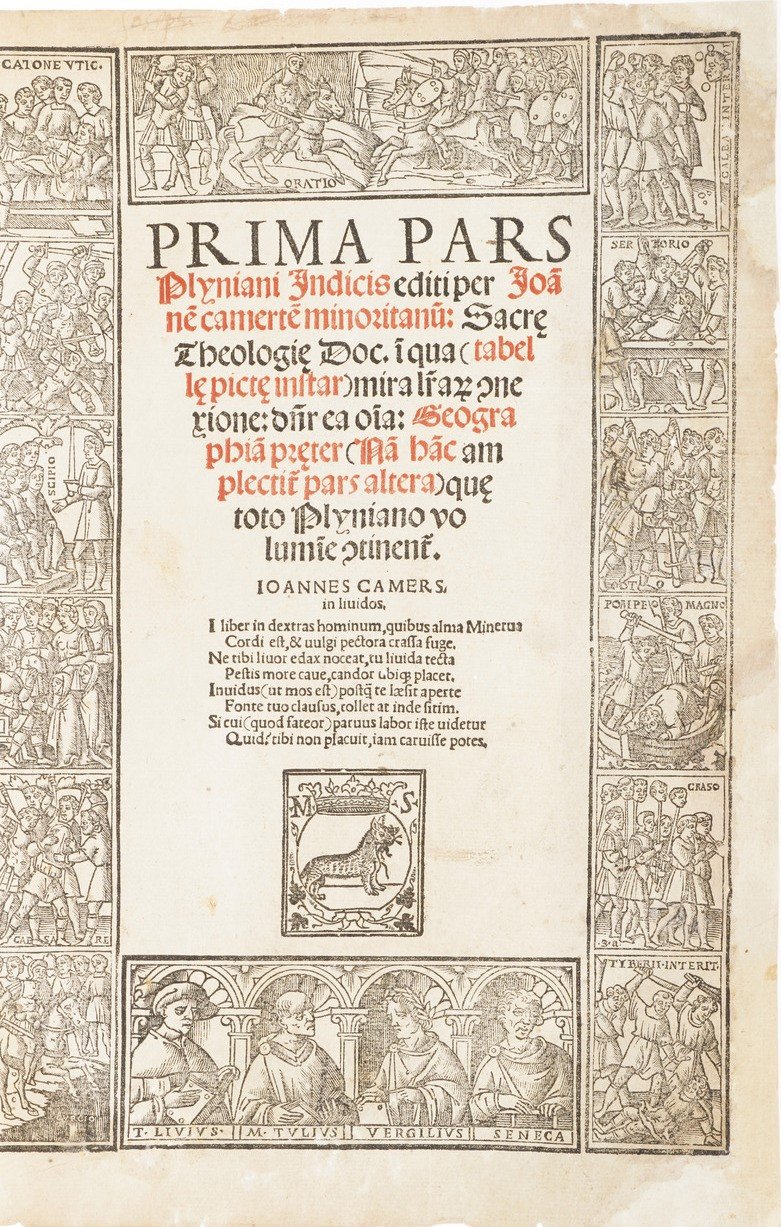 CATONE VTIC.
ORATION
SER TORIO
SCIPIO
POMPEVO MAGNO
CRASO
CAESA RE
TYBERII·INTERIT·
PRIMA PARS
Plyniani Indicis editi per Joã
nẽ camertẽ minoritanũ: Sacrę
Theologię Doc. ĩ qua (tabel
lę pictę instar) mira lr̃aꝝ ↄne
xione: dñr ea oĩa: Geogra
phiã pręter (Nã hãc am
plectit̃ pars altera) quę
toto Plyniano vo
lumĩe ↄtinent̃.
IOANNES CAMERS,
in liuidos.
I liber in dextras hominum, quibus alma Minerua
Cordi est, & uulgi pectora crassa fuge.
Ne tibi liuor edax noceat, tu liuida tecta
Pestis more caue, candor ubiqꝫ placet.
Inuidus (ut mos est) postq̃ te læsit aperte
Fonte tuo clausus, tollet at inde sitim.
Si cui (quod fateor) paruus labor iste uidetur
Quid? tibi non placuit, iam caruisse potes.
M S
T· LIVIVS· M· TVLIVS VERGILIVS SENECA